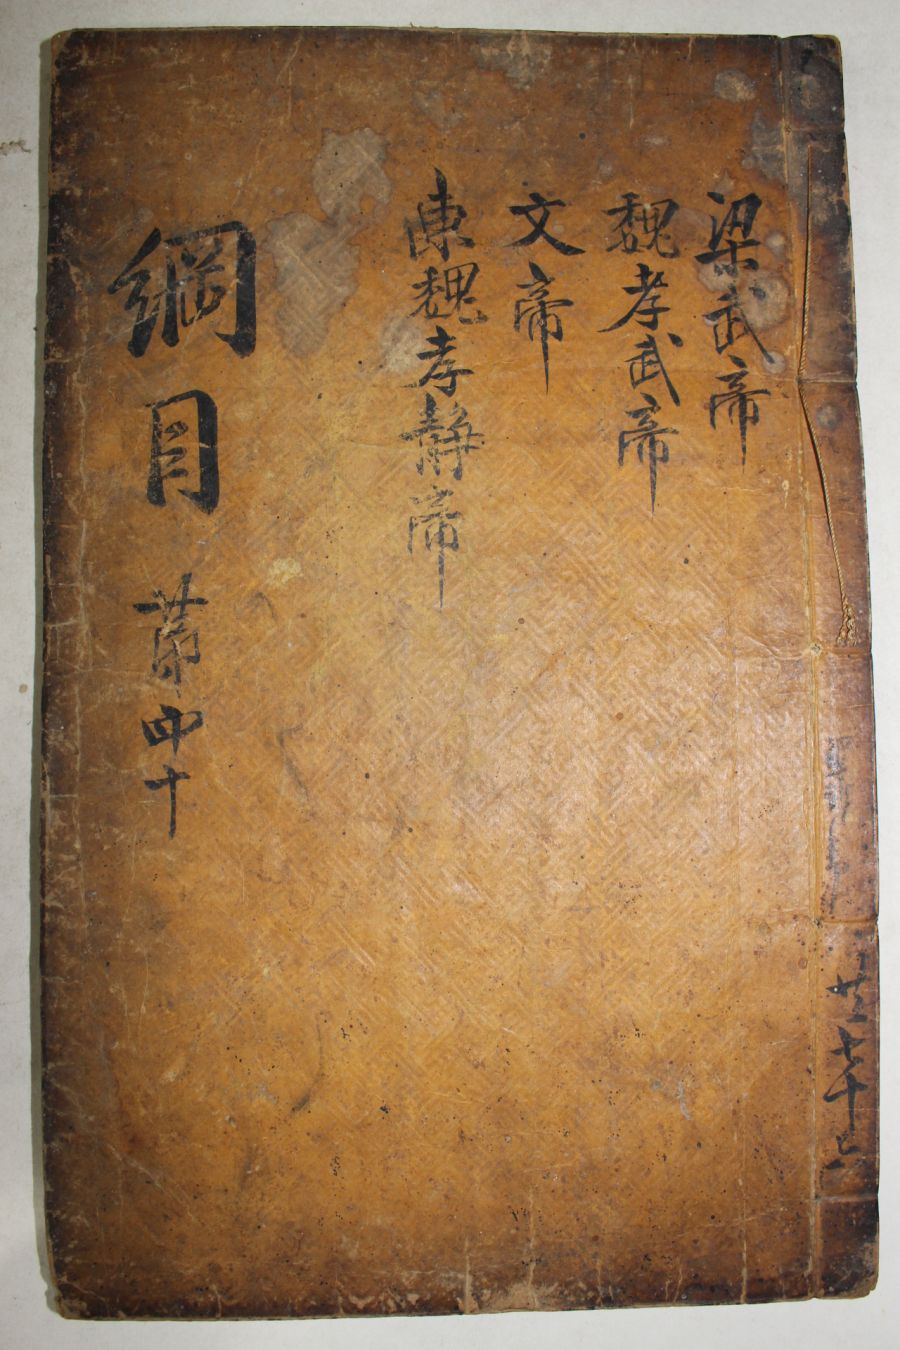 梁武帝
魏孝武帝
文帝
東魏孝靜帝
綱目 苐四十
共七十